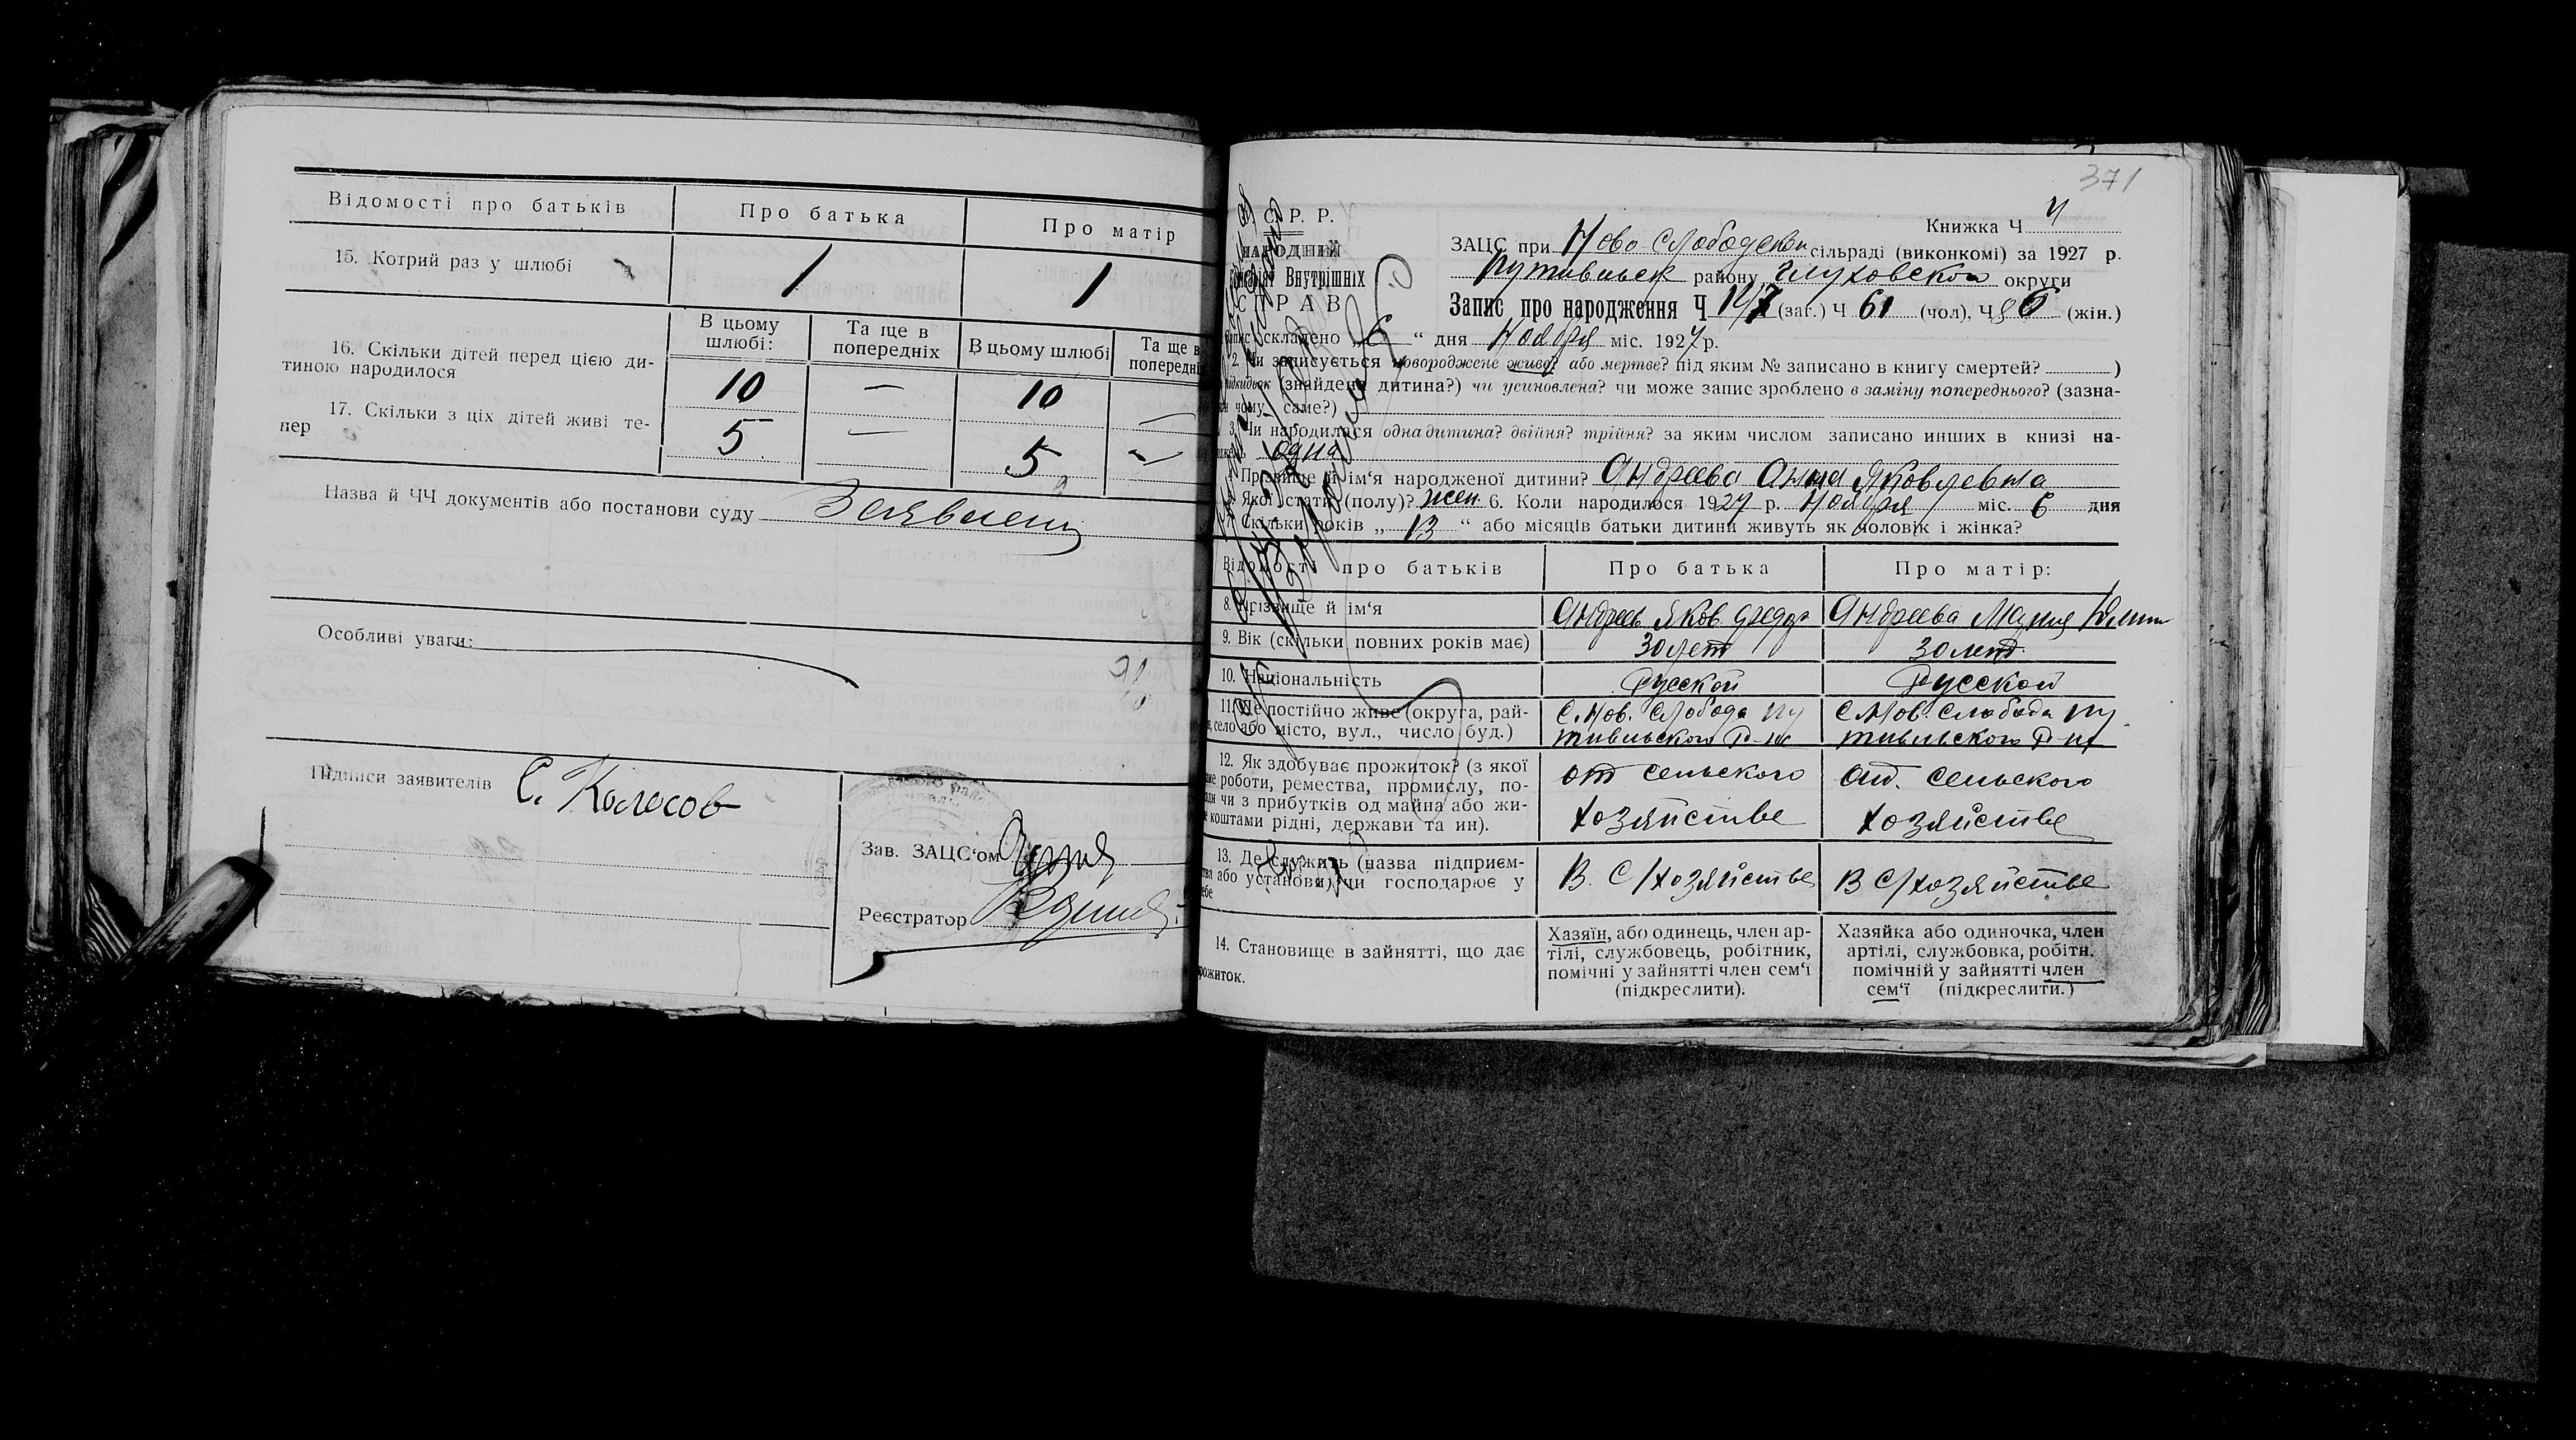 Відомості про батьків
Про батька
Про матір
15. Котрий раз у шлюбі
1
1
В цьому шлюбі:
Та ще в попередніх
В цьому шлюбі
Та ще в
16. Скільки дітей перед цією ди-
тиною народилося
10
—
10
—
17. Скільки з ціх дітей живі те-
пер
5
—
5
Назва й ЧЧ документів або постанови суду
Особливі уваги:
Підписи заявителів С. Колесов
Зав. ЗАЦС'ом
Реєстратор
371
С. Р. Р.
НАРОДНИЙ
Внутрішніх
СПРАВ
Книжка Ч 4
ЗАЦС при Ново-Слободской сільраді (виконкомі) за 1927 р.
Путивльск району Глуховской округи
Запис про народження Ч (заг.) Ч 61 (чол), Ч (жін.)
складено „ 6 “ дня Ноября міс. 1927 р.
2. Чи записується новороджене живо? або мертве? під яким № записано в книгу смертей? )
(знайдена дитина?) чи усиновлена? чи може запис зроблено в заміну попереднього? (зазна-
чому саме?)
3. Чи народилася одна дитина? двійня? трійня? за яким числом записано инших в книзі на-
одна
Прізвище й ім'я народженої дитини? Андреева Анна Яковлевна
Якої стати (полу)? жен. 6. Коли народилося 1927 р. Ноября міс. 6 дня
7. Скільки років „ 13 “ або місяців батьки дитини живуть як чоловік і жінка?
Відомості про батьків
Про батька
Про матір:
8. Прізвище й ім'я
Андреев Яков Федор
Андреева Мария
9. Вік (скільки повних років має)
30 лет
30 лет.
10. Національність
Русской
Русской
11. Де постійно живе (округа, рай-
село або місто, вул., число буд.)
С. Нов. Слобода Пу
тивльского Р-на
С. Нов. Слобода Пу
тивльского Р-на
12. Як здобуває прожиток? (з якої
роботи, ремества, промислу, по-
чи з прибутків од майна або жи-
коштами рідні, держави та ин).
от сельского
хозяйстве
от. сельского
хозяйстве
13. Де служить (назва підприєм-
або установи) чи господарює у
В. С/хозяйстве
В С/хозяйстве
14. Становище в зайнятті, що дає
Хазяїн, або одинець, член ар-
тілі, службовець, робітник,
помічні у зайнятті член сем'ї
(підкреслити).
Хазяйка або одиночка, член
артілі, службовка, робітн.
помічній у зайнятті член
сем'ї (підкреслити.)